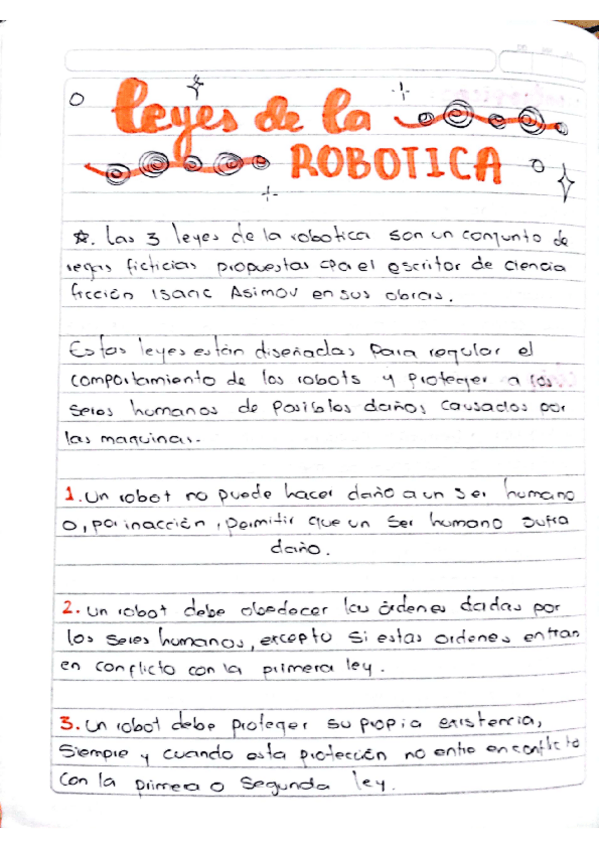 leyes de la
ROBOTICA
Las 3 leyes de la robotica son un conjunto de
regas ficticias propuestas el escritor de ciencia
ficción Isaac Asimov en sus obras.
Estas leyes están diseñadas para regular el
comportamiento de los robots y proteger a los
seres humanos de posibles daños causados por
las maquinas.
1. Un robot no puede hacer daño a un ser humano
o, por inacción, permitir que un ser humano sufra
daño.
2. Un robot debe obedecer las órdenes dadas por
los seres humanos, excepto si estas ordenes entran
en conflicto con la primera ley.
3. Un robot debe proteger su propia existencia,
Siempre y cuando esta protección no entre en conflicto
Con la primera o Segunda ley.